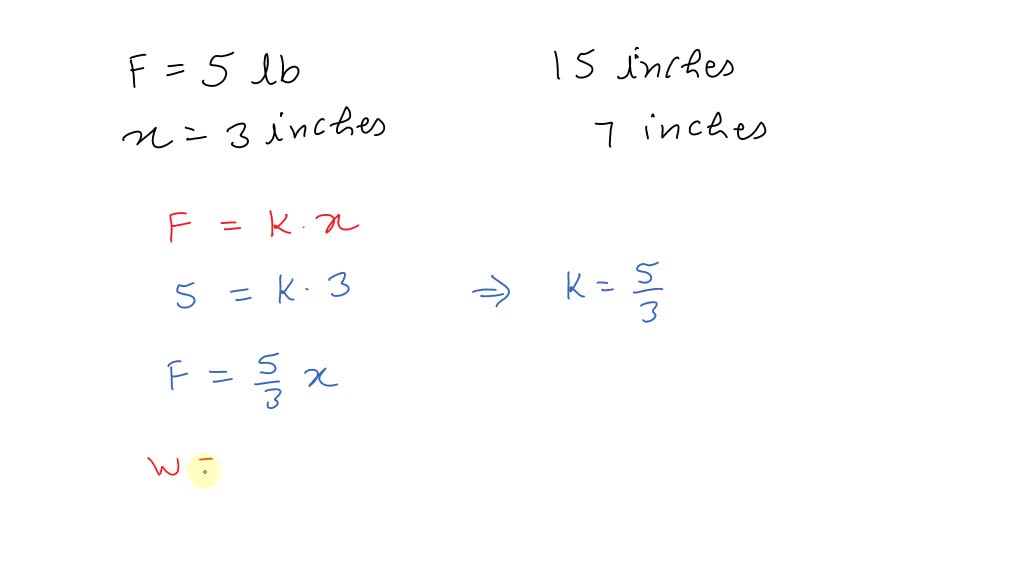 F = 5 lb
x = 3 inches
15 inches
7 inches
F = k · x
5 = k · 3 ⇒ k = 5/3
F = 5/3 x
W =